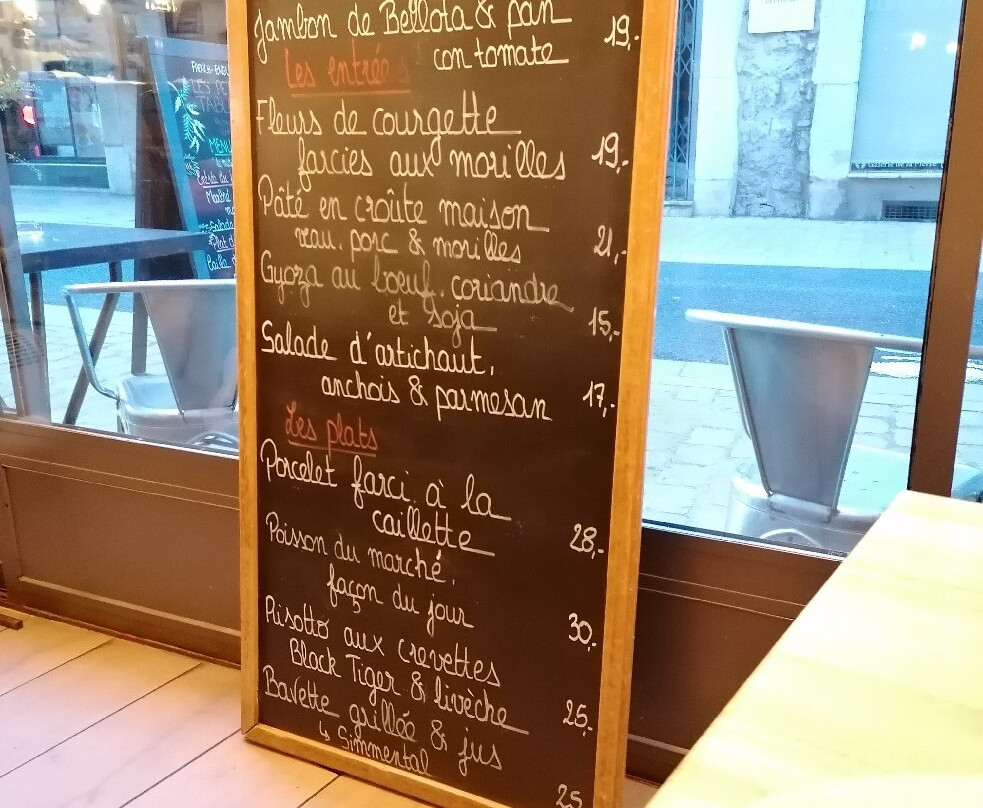 Jambon de Bellota & pan
con tomate 19,-
Les entrées
Fleurs de courgette
farcies aux morilles 19,-
Pâté en croûte maison
veau, porc & morilles 21,-
Gyoza au bœuf, coriandre
et soja 15,-
Salade d'artichaut,
anchois & parmesan 17,-
Les plats
Porcelet farci à la
caillette 28,-
Poisson du marché,
façon du jour 30,-
Risotto aux crevettes
Black Tiger & livèche 25,-
Bavette grillée & jus
↳ Simmental 25
MENU